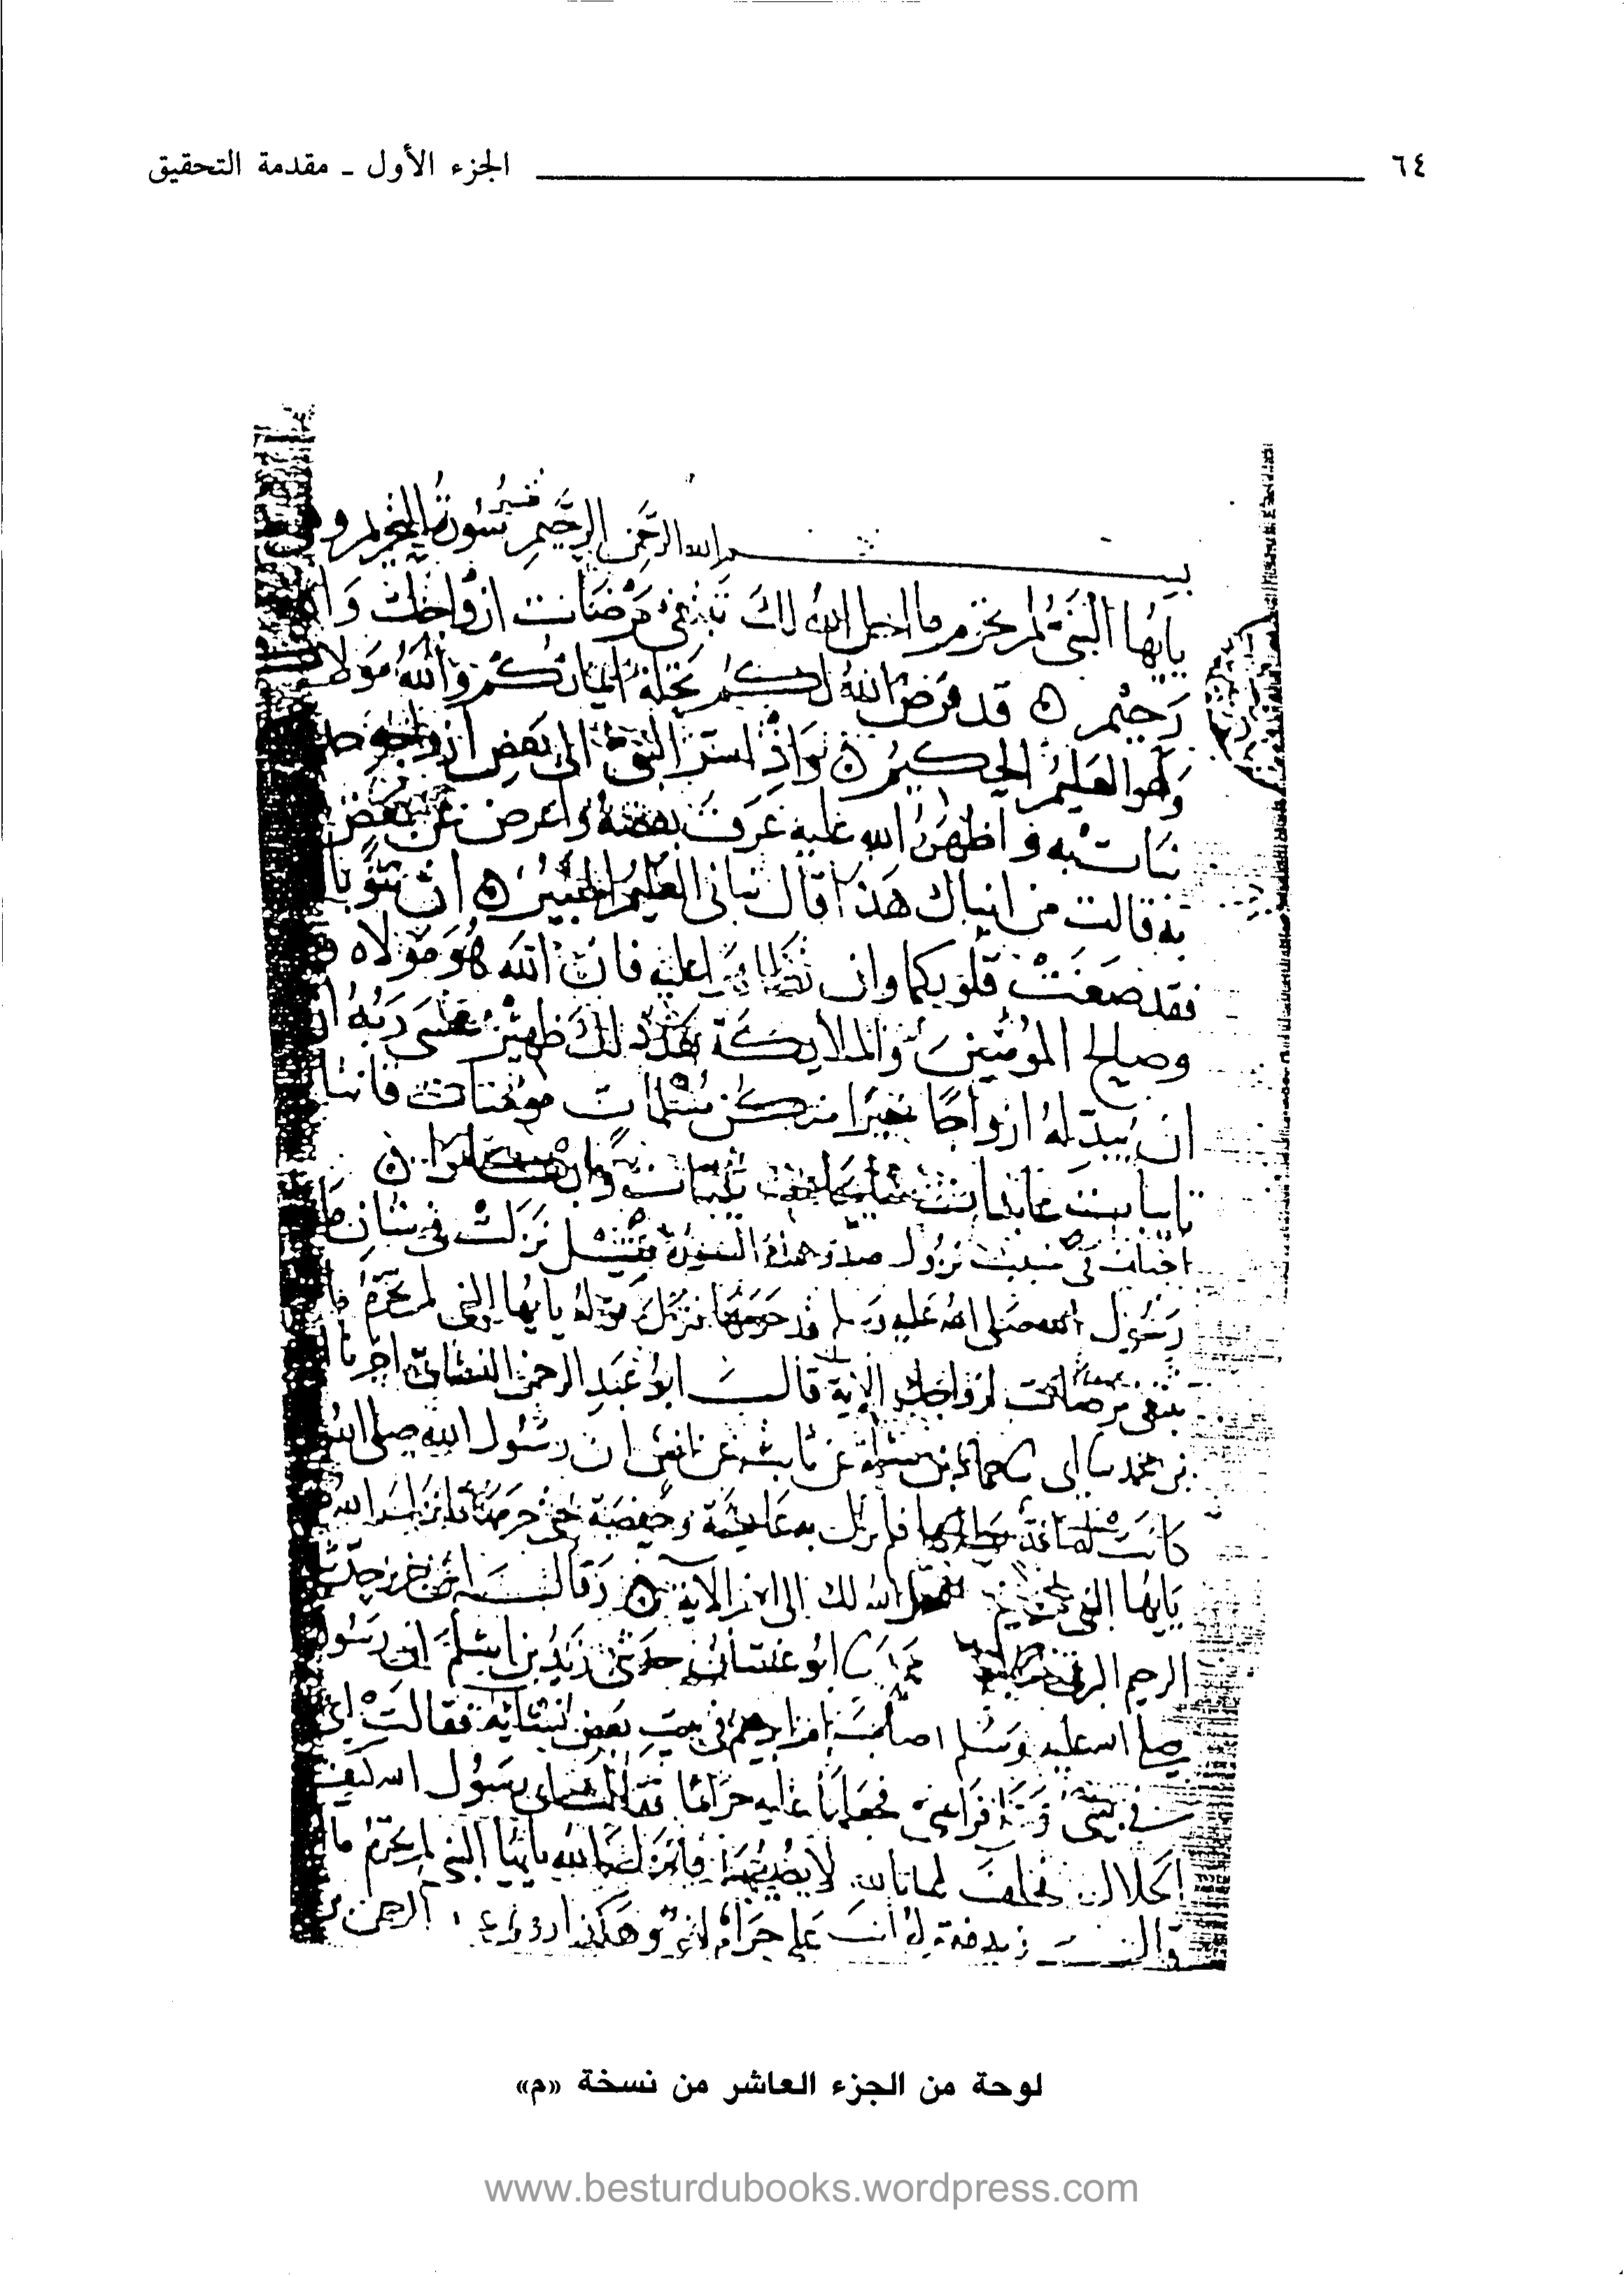 ٦٤ الجزء الأول ـ مقدمة التحقيق
بسم الله الرحمن الرحيم تفسير سورة التحريم و
يايها النبي لم تحرم ما احل الله لك تبتغي مرضات ازواجك و
رحيم قد فرض الله لكم تحلة ايمانكم والله مولا
وهو العليم الحكيم واذ اسر النبي الى بعض ازواجه
نبات به واظهره الله عليه عرف بعضه واعرض عن بعض
به قالت من انباك هذا قال نباني العليم الخبير ان تتوبا
فقد صغت قلوبكما وان تظاهرا عليه فان الله هو مولاه
وصالح المؤمنين والملايكة بعد ذلك ظهير عسى ربه ان
ان يبدله ازواجا خيرا منكن مسلمات مؤمنات قانتا
تايبات عابدات سايحات ثيبات وابكارا
اختلف في سبب نزول صدر هذه السورة فقيل نزلت في شان
رسول الله صلى الله عليه وسلم قد حرمها فنزل قوله يايها النبي لم تحرم ما
تبتغي مرضات ازواجك الاية قال ابو عبد الرحمن النسائي اخبرنا
بن محمد ابي حماد بن سلمة عن ثابت عن انس ان رسول الله صلى الله
كانت له امة يطاها فلم تزل به عايشة وحفصة حتى حرمها فانزل الله
يايها النبي لم تحرم ما احل الله لك الى اخر الاية وقال ابن جرير حدث
الرحيم البرقي ابو غسان حدثني زيد بن اسلم ان رسول
صلى الله عليه وسلم اصاب ام ابراهيم في بيت بعض نسايه فقالت اي
في بيتي وعلى فراشي فجعلها عليه حراما فقالت اي رسول الله كيف
الحلال فحلف لها بالله لا يصيبها فانزل الله يايها النبي لم تحرم ما
قال زيد فقوله انت علي حرام لغو وهكذا روى عبد الرحمن
لوحة من الجزء العاشر من نسخة «م»
www.besturdubooks.wordpress.com